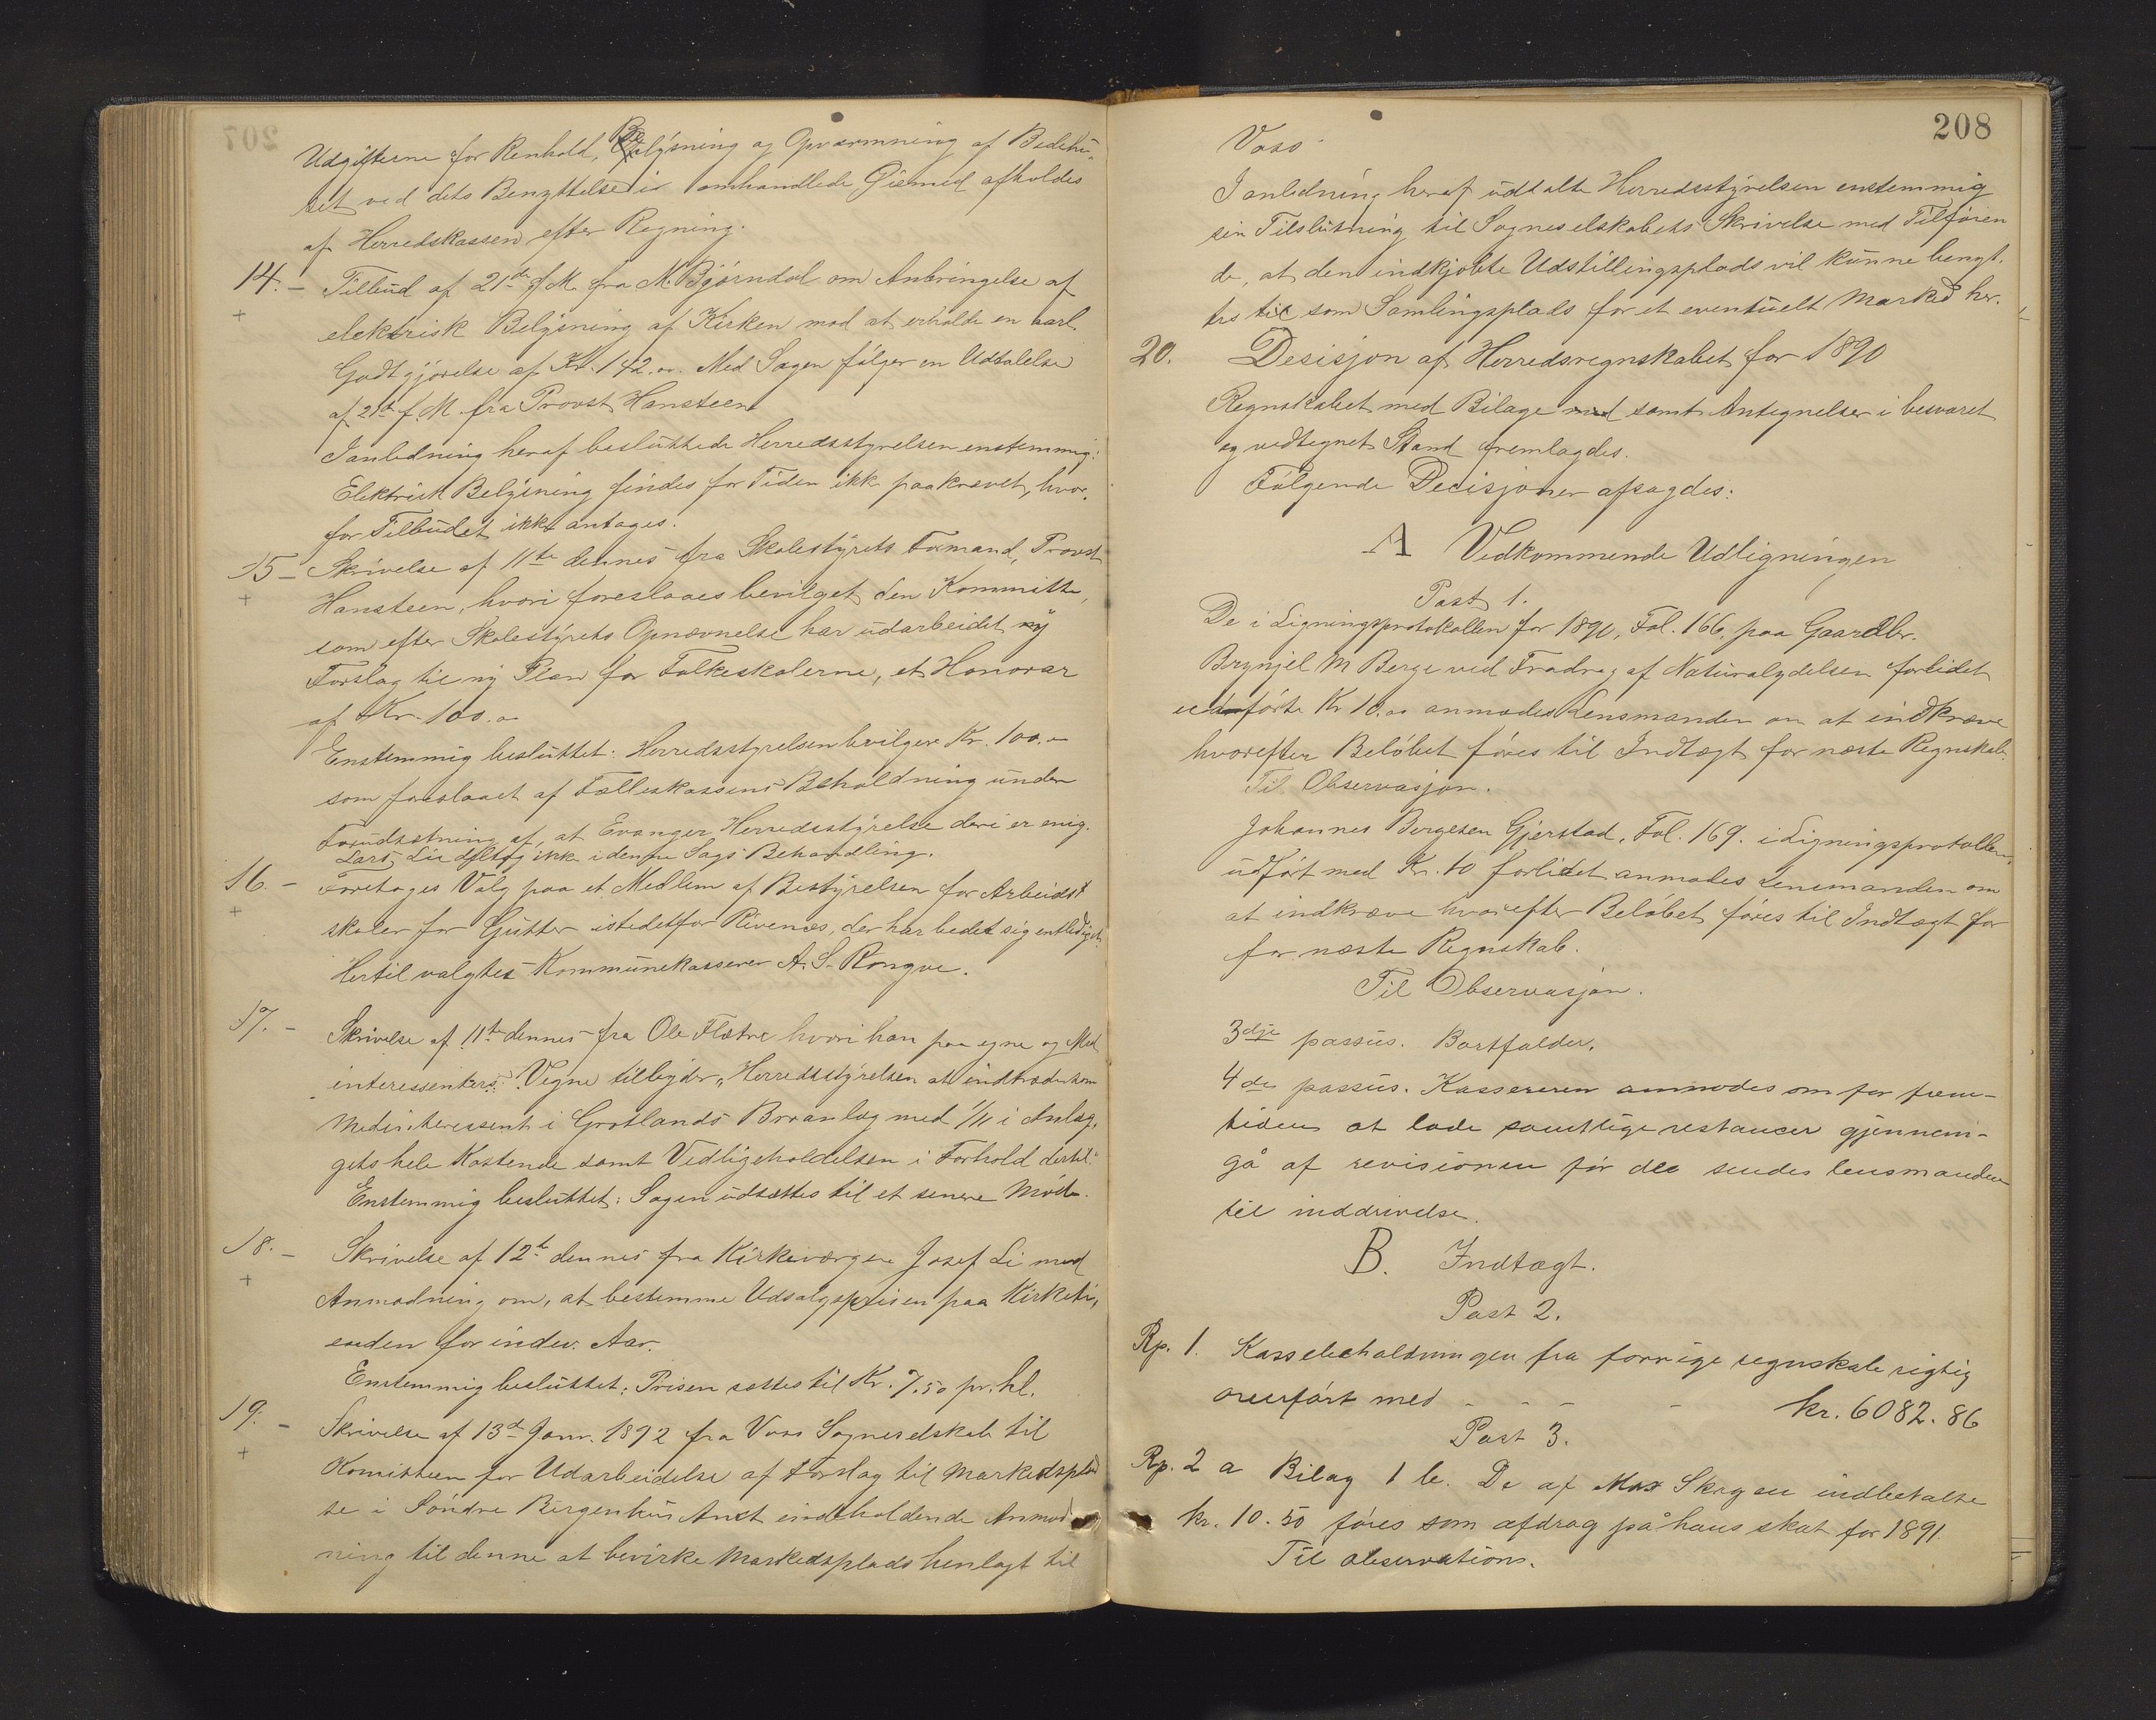 Udgifterne for Renhold, Belysning og Opvarmning af Bedehu-
set ved dets Benyttelse i omhandlede Øiemed afholdes
af Herredskassen efter Regning.
14. – Tilbud af 21de f. M. fra M. Bjørndal om Anbringelse af
+ elektrisk Belysning af Kirken mod at erholde en aarl.
Godtgjørelse af Kr. 142.00. Med Sagen følger en Udtalelse
af 21de f. M. fra Provst Hansteen
I anledning heraf besluttede Herredsstyrelsen enstemmig:
Elektrisk Belysning findes for Tiden ikke paakrævet, hvor-
for Tilbudet ikke antages.
15 – Skrivelse af 11te dennes fra Skolestyrets Formand, Provst
+ Hansteen, hvori foreslaaes bevilget den Kommitte,
som efter Skolestyrets Opnævnelse har udarbeidet ny
Forslag til ny Plan for Folkeskolerne, et Honorar
af Kr. 100.00
Enstemmig besluttet: Herredsstyrelsen bevilger Kr. 100.00
som foreslaaet af Fælleskassens Beholdning under
Forudsætning af, at Evanger Herredsstyrelse deri er enig.
Lars Lie deltog ikke i denne Sags Behandling.
16. – Foretages Valg paa et Medlem af Bestyrelsen for Arbeids-
+ skoler for Gutter istedetfor Rivenæs, der har bedet sig entlediget.
Hertil valgtes Kommunekasserer A. S. Rongve.
17. – Skrivelse af 11te dennes fra Ole Flatre hvori han paa egne og Med
interessenters Vegne tilbyder „Herredsstyrelsen at indtræde som
Medinteressent i Grotlands Broanlæg med 1/11 i Anlæg-
gets hele Kostende samt Vedligeholdelsen i Forhold dertil."
Enstemmig besluttet: Sagen udsættes til et senere Møde.
18. – Skrivelse af 12te dennes fra Kirkeværge Josef Li med
+ Anmodning om, at bestemme Udsalgsprisen paa Kirketi-
enden for indev. Aar.
Enstemmig besluttet: Prisen sattes til Kr. 7.50 pr. hl.
19. – Skrivelse af 13de Janr. 1892 fra Voss Sogneselskab til
+ Komiteen for Udarbeidelse af Forslag til Markedsplad
se i Søndre Bergenhus Amt indeholdende Anmod
ning til denne at bevirke Markedsplads henlagt til
208
Voss
I anledning heraf udtalte Herredsstyrelsen enstemmig
sin Tilslutning til Sogneselskabets Skrivelse med Tilføien
de, at den indkjøbte Udstillingsplads vil kunne benyt-
tes til som Samlingsplads for et eventuelt Marked her.
20. Desisjon af Herredsregnskabet for 1890
Regnskabet med Bilage med samt Antegnelser i besvaret
og vedtegnet Stand fremlagdes.
Følgende Decisjoner afsagdes:
A Vedkommende Udligningen
Post 1.
De i Ligningsprotokollen for 1890, Fol. 166, paa Gaardbr.
Brynjel M Berge ved Fradrag af Naturalydelsen forlidet
udførte Kr 10.00 anmodes Lensmanden om at indkræve
hvorefter Beløbet føres til Indtægt for næste Regnskab.
Til Observasjon.
Johannes Børgesen Gjerstad, Fol. 169. i Ligningsprotokollen,
udført med Kr. 10 forlidet anmodes Lensmanden om
at indkræve hvorefter Beløbet føres til Indtægt for
for næste Regnskab.
Til Observasjon.
3dje passus. Bortfalder.
4de passus. Kassereren anmodes om for frem-
tiden at lade samtlige restancer gjennem-
gå af revisionen før de sendes lensmanden
til inddrivelse.
B. Indtægt.
Post 2.
Rp. 1. Kassebeholdningen fra forrige regnskab rigtig
overført med – – – – kr. 6082.86
Post 3.
Rp. 2 a Bilag 1 b. De af Max Skrgen indbetalte
kr. 10.50 føres som afdrag på hans skat for 1891.
Til observation.